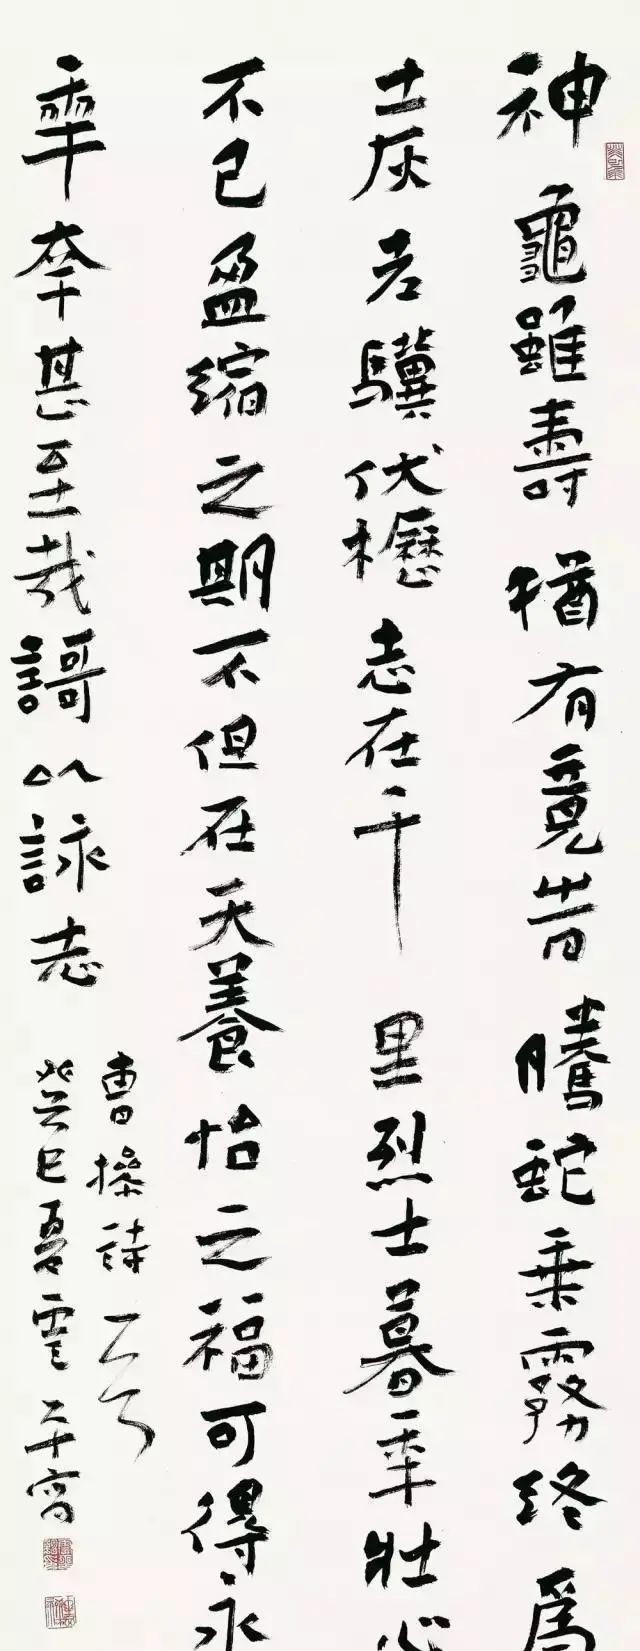 神龜雖壽猶有竟昔騰蛇乗霧終為
土灰老驥伏櫪志在千里烈士暮年壯心
不已盈缩之期不但在天養怡之福可得永
年幸甚至哉謌以詠志
曹操詩一首
癸巳夏雲平齋